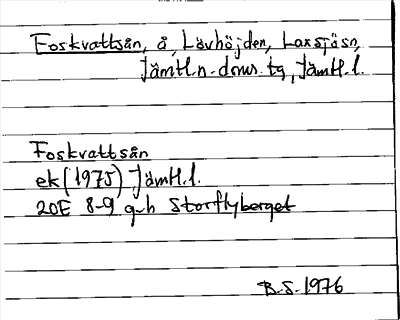 Foskvattsån, å, Lövhöjden, Laxsjösn,
Jämtl.n.doms.tg, Jämtl.l.
Foskvattsån
ek (1975) Jämtl.l.
20E 8-9 g-h Storflyberget
B.S. 1976